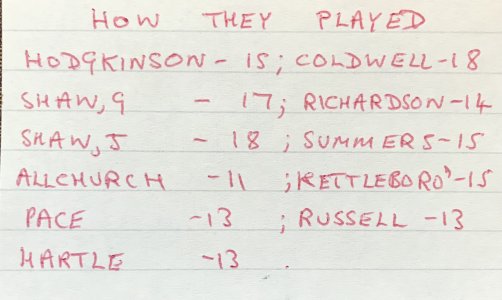 HOW THEY PLAYED
HODGKINSON - 15; COLDWELL - 18
SHAW, G - 17; RICHARDSON - 14
SHAW, J - 18; SUMMERS - 15
ALLCHURCH - 11; KETTLEBORO' - 15
PACE - 13; RUSSELL - 13
HARTLE - 13.